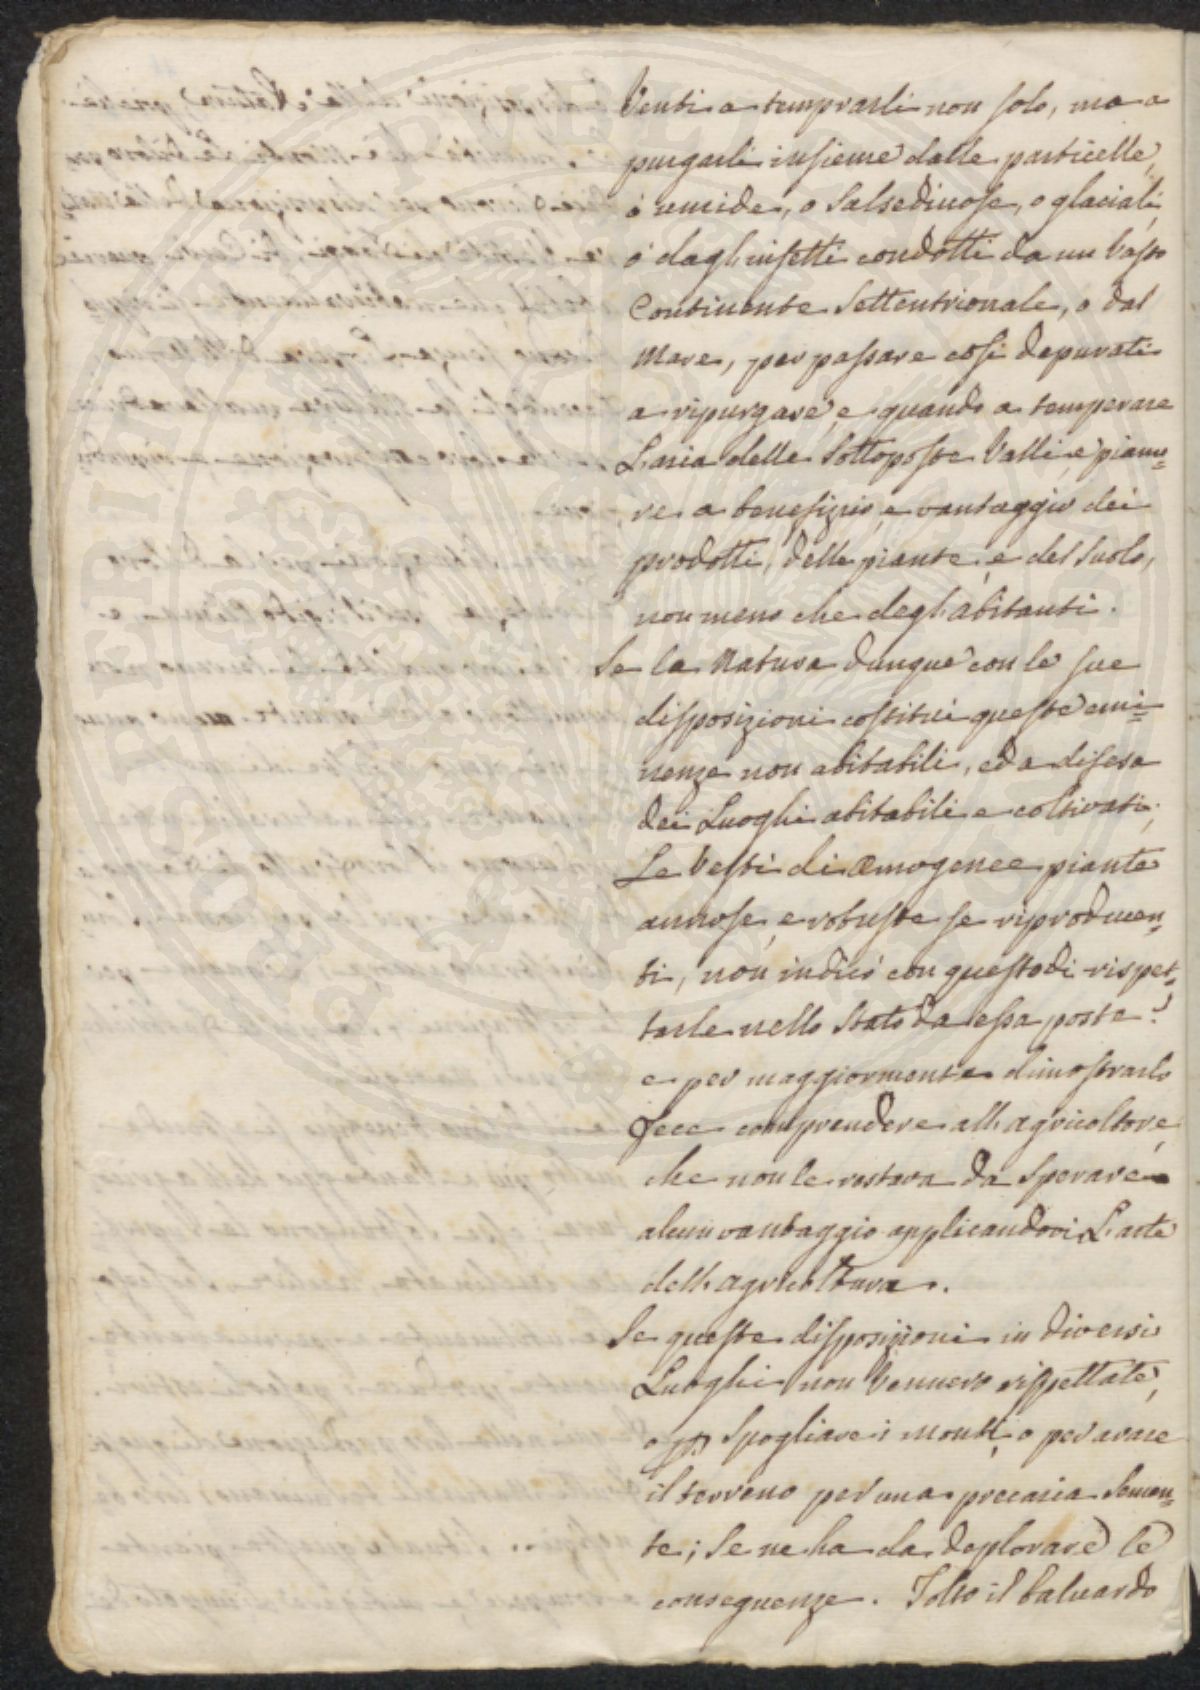 Venti a temprarli non solo, ma a
purgarli insieme dalle particelle,
ò umide, o Salsedinose, o glaciali,
ò dagl'insetti condotti da un Vasto
Continente Settentrionale, o dal
Mare, per passare così depurati
a ripurgare, e quando a temperare
L'aria delle Sottoposte Valli, e pianu=
re a benefizio, e vantaggio dei
prodotti, delle piante, e del Suolo,
non meno che degl'abitanti.
Se la Natura dunque con le sue
disposizioni costituì queste emi=
nenze non abitabili, ed a difesa
dei Luoghi abitabili e coltivati;
Le Vestì di Æmogenee piante
annose, e robuste se riproducen=
ti, non indicò con questo di rispet=
tarle nello Stato da essa poste?
e per maggiormente dimostrarlo
Fece comprendere all'agricoltore,
che non le restava da Sperare
alcun vantaggio applicandovi L'arte
dell'agricoltura.
Se queste disposizioni in diversi
Luoghi non Vennero rispettate,
o per Spogliare i Monti, o per arare
il terreno per una precaria Semen=
te; Se ne ha da deplorare le
conseguenze. Tolto il baluardo